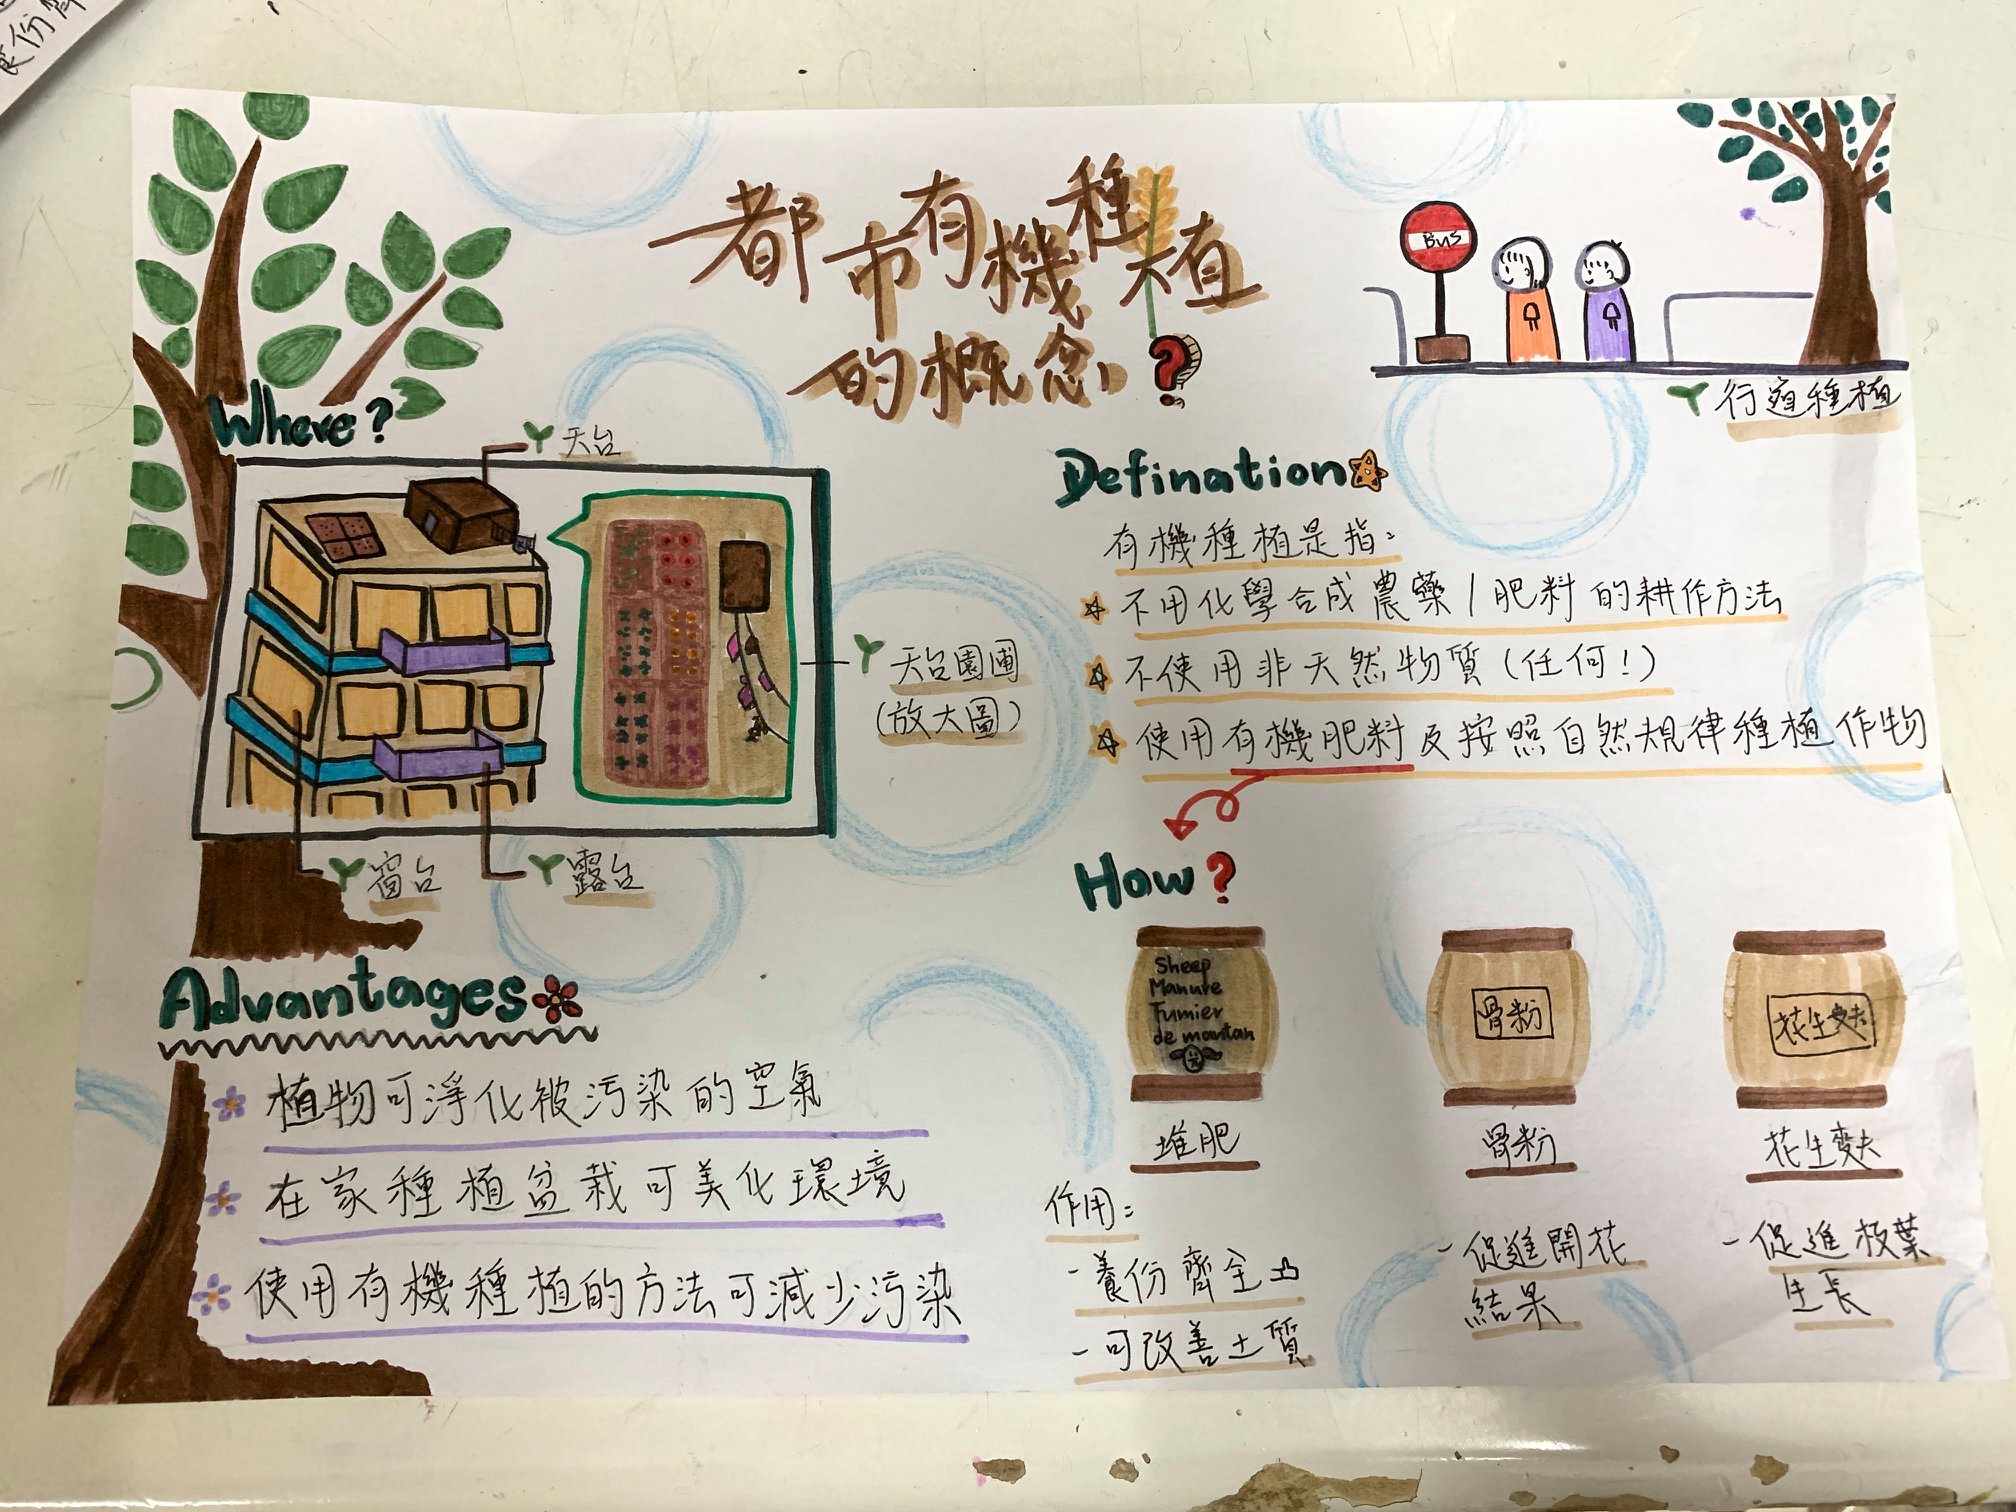 食份齊
都市有機種植
的概念?
BUS
行道種植
Where?
天台
天台園圃
(放大圖)
窗台
露台
Defination
有機種植是指:
不用化學合成農藥/肥料的耕作方法
不使用非天然物質(任何!)
使用有機肥料及按照自然規律種植作物
How?
Sheep
Manure
Fumier
de moutan
骨粉
花生麩
堆肥
骨粉
花生麩
作用:
-養份齊全
-可改善土質
-促進開花
結果
-促進枝葉
生長
Advantages
植物可淨化被污染的空氣
在家種植盆栽可美化環境
使用有機種植的方法可減少污染